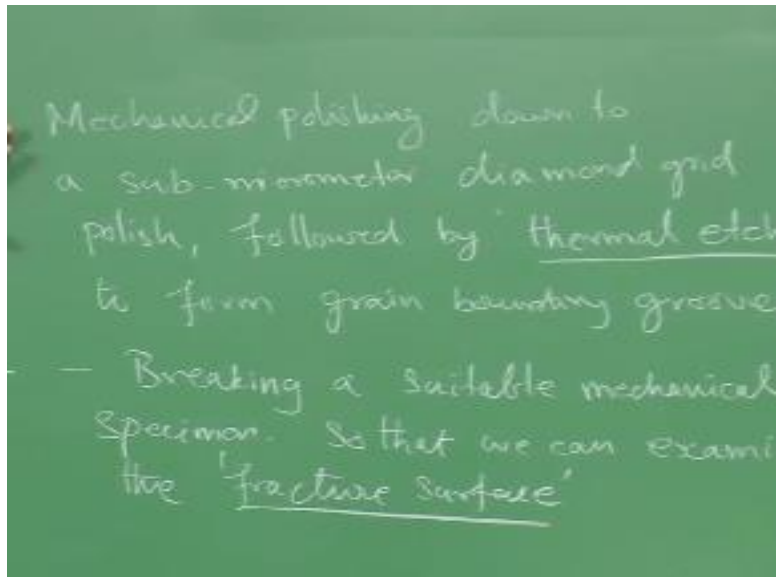 Mechanical polishing down to
a sub-micrometer diamond grid
polish, followed by thermal etch
to form grain boundary groove
- - Breaking a suitable mechanical
specimen. So that we can exami
the 'fracture surface'